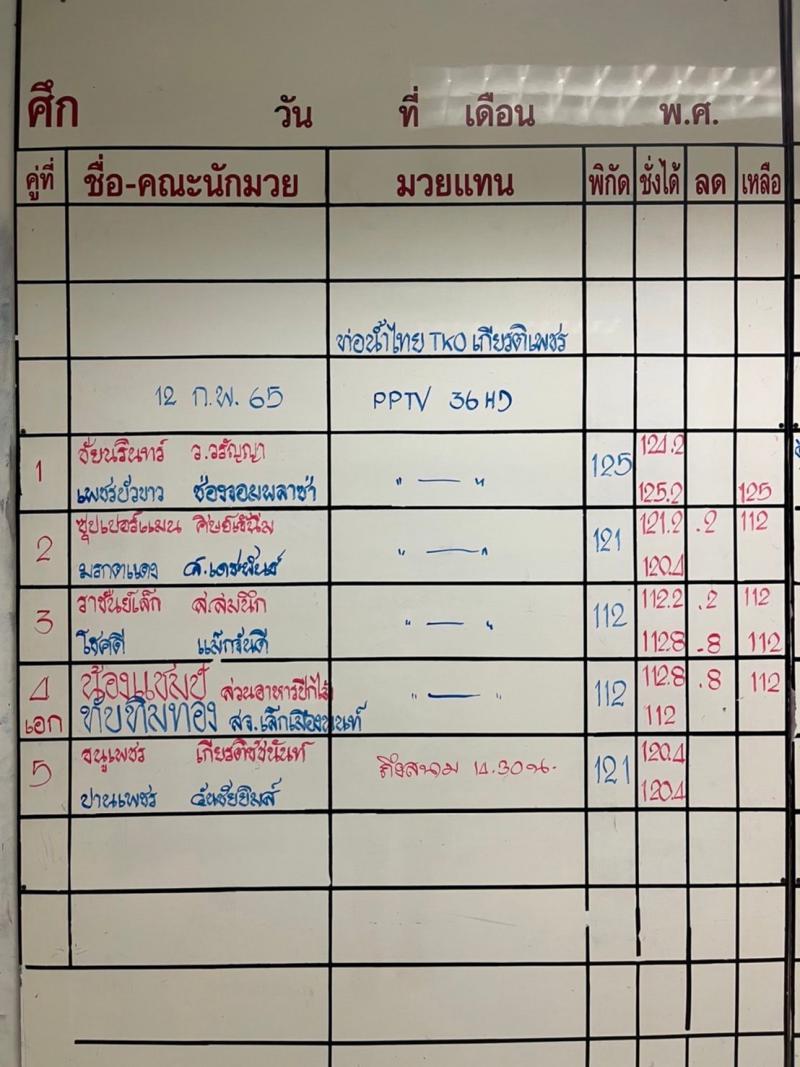 ศึก วัน ที่ เดือน พ.ศ.
คู่ที่ ชื่อ-คณะนักมวย มวยแทน พิกัด ชั่งได้ ลด เหลือ
ท่อน้ำไทย TKO เกียรติเพชร
12 ก.พ. 65 PPTV 36 HD
1 ชัยนรินทร์ ว.วรัญญา 125 124.2
เพชรบัวขาว ช่องจอมพลาซ่า " — " 125.2 125
2 ซุปเปอร์แมน 121 121.2 .2 112
มรกตแดง ส.เดชพันธ์ " — " 120.4
3 ราชันย์เล็ก ส.สมนึก 112 112.2 .2 112
โชคดี แม็กจันดี " — " 112.8 .8 112
4 น้องแชมป์ ส่วนอาหารปีกไม้ " — " 112 112.8 .8 112
เอก ทับทิมทอง สจ.เล็กเมืองนนท์ 112
5 ธนูเพชร เกียรติชัชนันท์ ถึงสนาม 14.30 น. 121 120.4
ปานเพชร 120.4